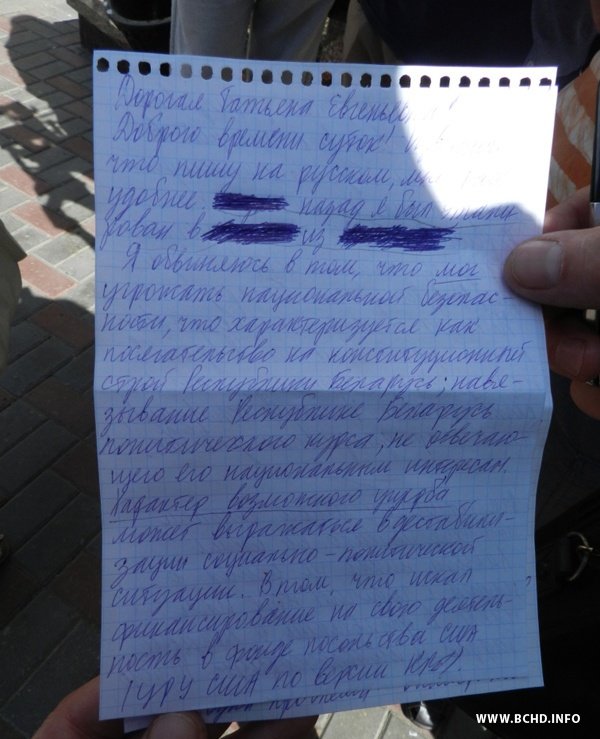 Дорогая Татьяна Евгеньевна!
Доброго времени суток!
что пишу на русском, мне
удобнее. назад я был этапи
рован в из
Я обвиняюсь в том, что мог
угрожать национальной безопас-
ности, что характеризуется как
посягательство на конституционный
строй Республики Беларусь; навя-
зывание Республике Беларусь
политического курса, не отвечаю-
щего его национальным интересам.
Характер возможного ущерба
может выражаться в дестабили-
зации социально-политической
ситуации. В том, что искал
финансирование на свою деятель-
ность в фонде посольства США
(ЦРУ США по версии КГБ).
WWW.BCHD.INFO